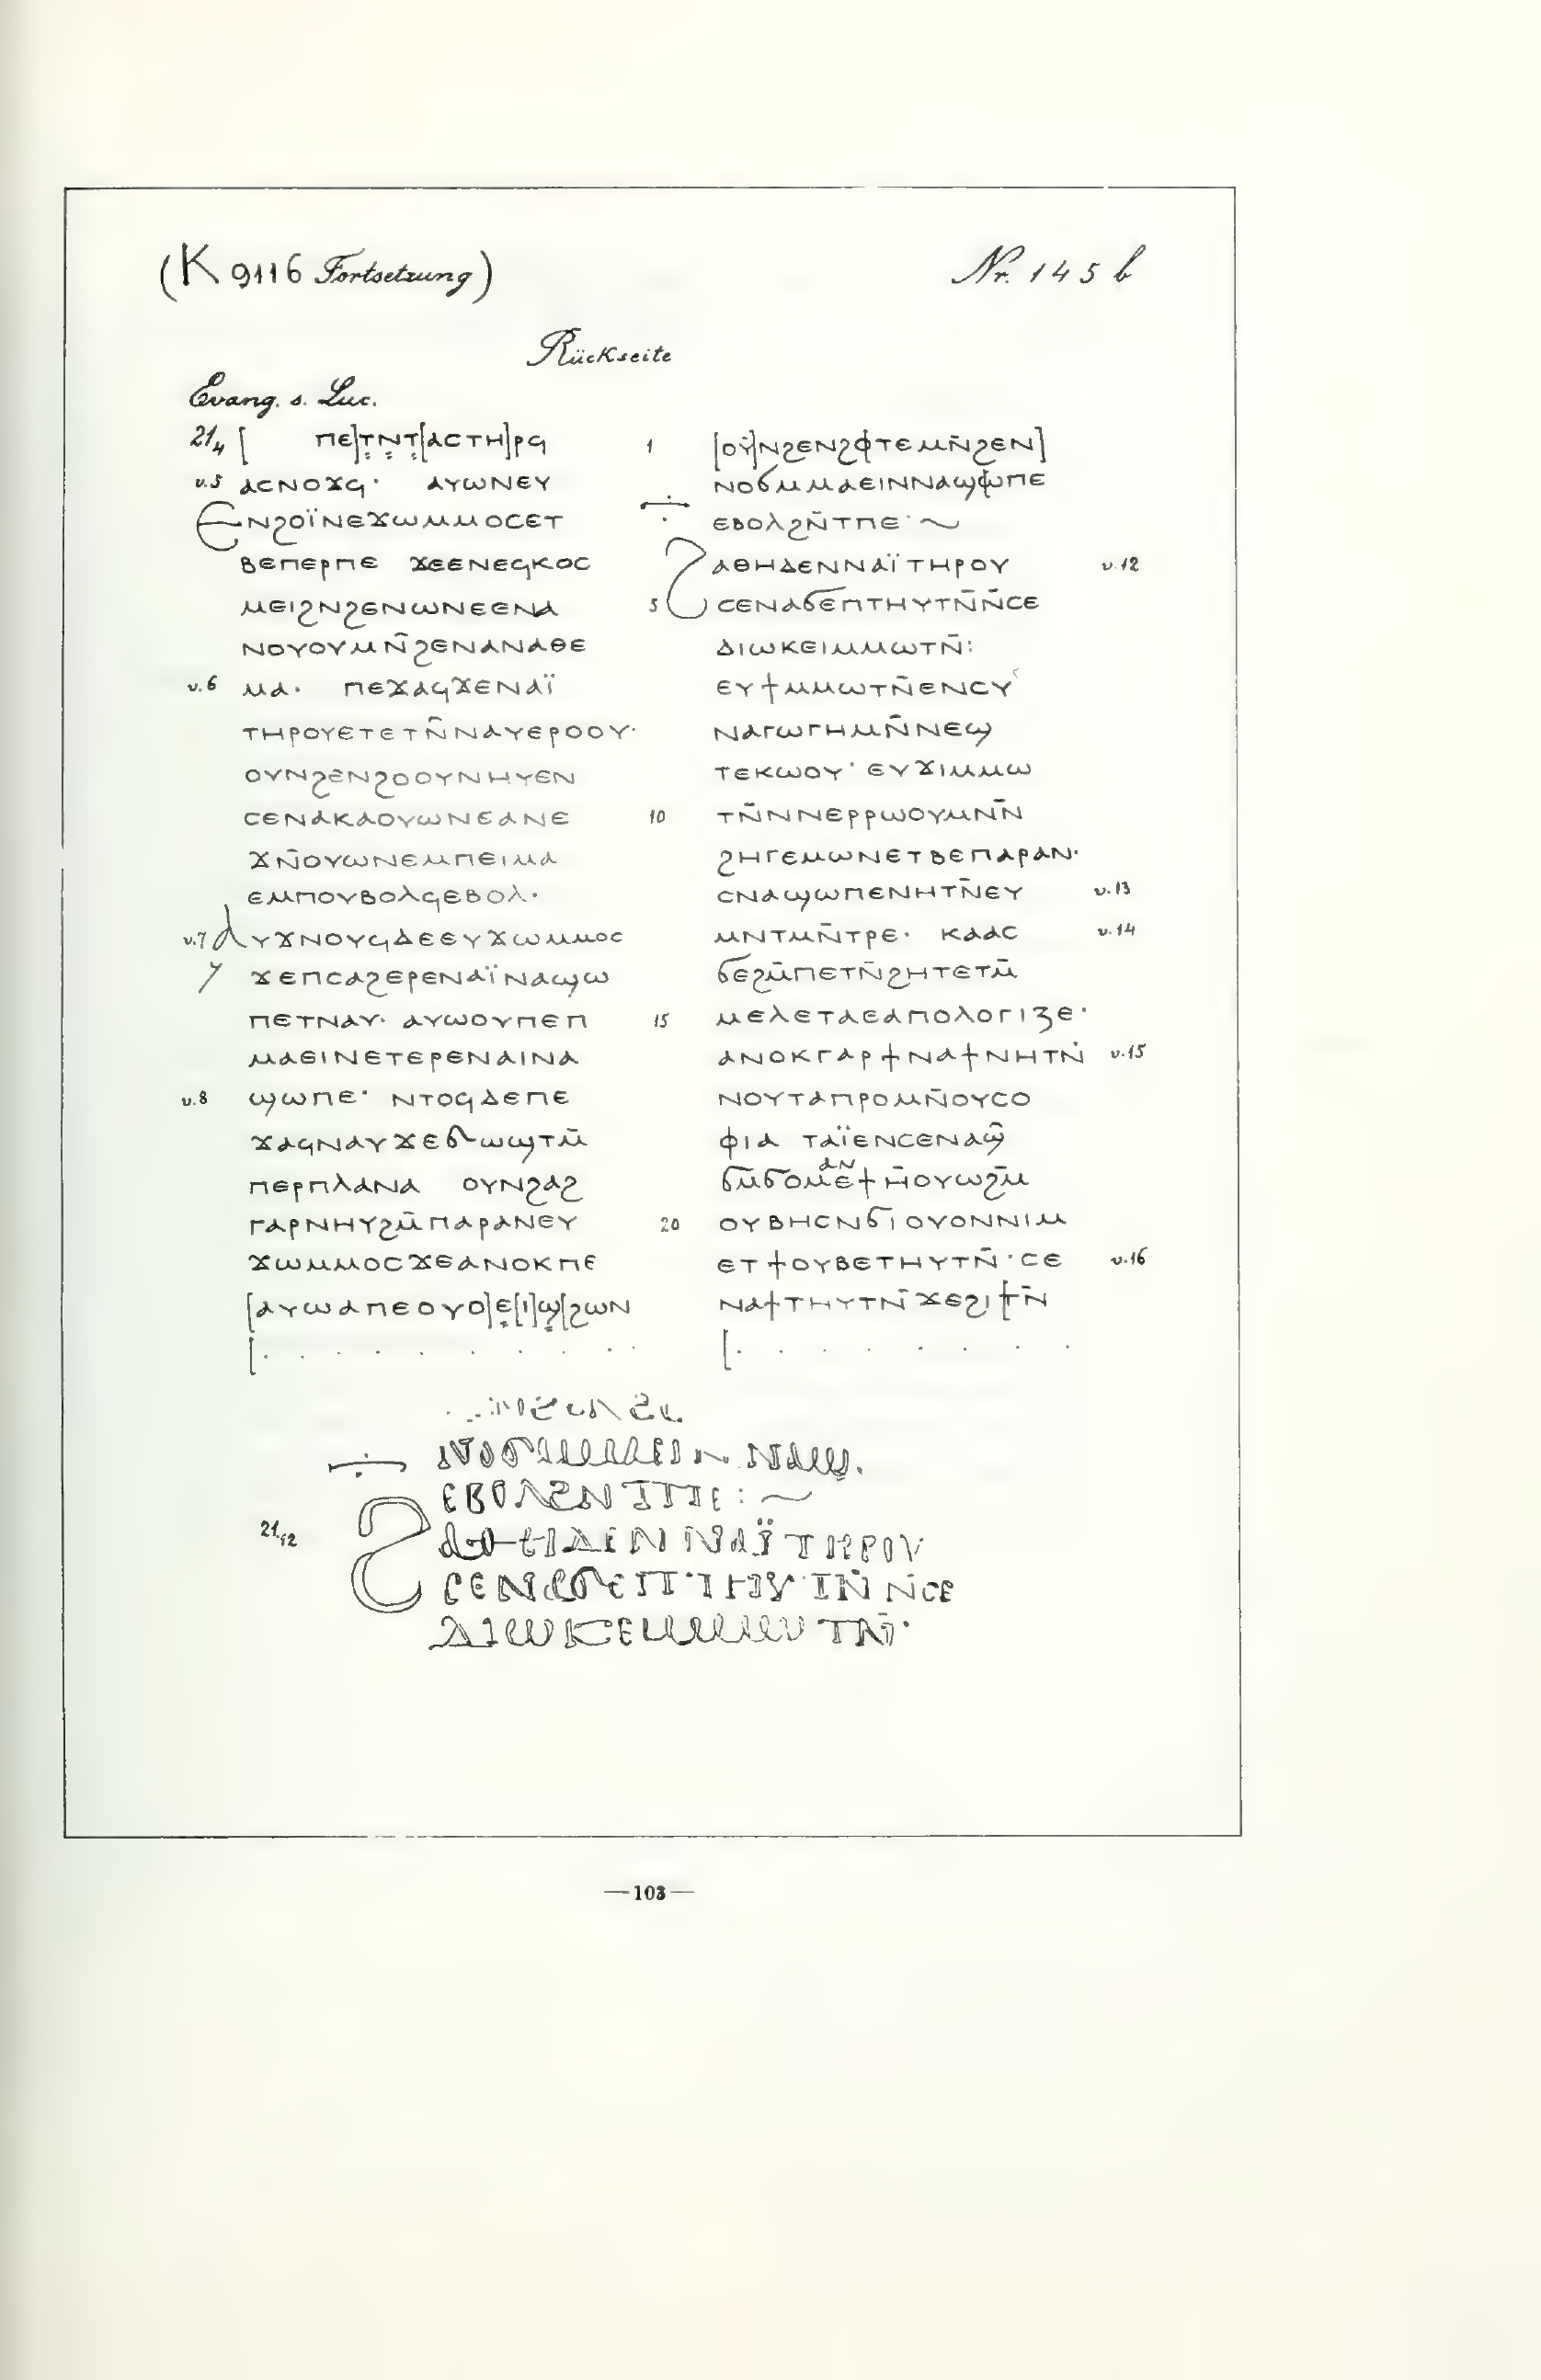 (K 9116 Fortsetzung)
Nr. 145 b
Rückseite
Evang. s. Luc.
21,4 [ ⲡⲉ]ⲧ̣ⲛ̣ⲧ̣[ⲁⲥⲧⲏ]ⲣϥ
v.5 ⲁⲥⲛⲟϫϥ· ⲁⲩⲱⲛⲉⲩ
Ⲉⲛϩⲟⲓ̈ⲛⲉϫⲱⲙⲙⲟⲥⲉⲧ
ⲃⲉⲡⲉⲣⲡⲉ ϫⲉⲉⲛⲉϥⲕⲟⲥ
ⲙⲉⲓϩⲛϩⲉⲛⲱⲛⲉⲉⲛⲁ
ⲛⲟⲩⲟⲩⲙⲛ̄ϩⲉⲛⲁⲛⲁⲑⲉ
v.6 ⲙⲁ· ⲡⲉϫⲁϥϫⲉⲛⲁⲓ̈
ⲧⲏⲣⲟⲩⲉⲧⲉⲧⲛ̄ⲛⲁⲩⲉⲣⲟⲟⲩ·
ⲟⲩⲛϩⲉⲛϩⲟⲟⲩⲛⲏⲩⲉⲛ
ⲥⲉⲛⲁⲕⲁⲟⲩⲱⲛⲉⲁⲛⲉ
ϫⲛ̄ⲟⲩⲱⲛⲉⲙⲡⲉⲓⲙⲁ
ⲉⲙⲡⲟⲩⲃⲟⲗϥⲉⲃⲟⲗ·
v.7 ⲁⲩϫⲛⲟⲩϥⲇⲉⲉⲩϫⲱⲙⲙⲟⲥ
ϫⲉⲡⲥⲁϩⲉⲣⲉⲛⲁⲓ̈ⲛⲁϣⲱ
ⲡⲉⲧⲛⲁⲩ· ⲁⲩⲱⲟⲩⲡⲉⲡ
ⲙⲁⲉⲓⲛⲉⲧⲉⲣⲉⲛⲁⲓⲛⲁ
v.8 ϣⲱⲡⲉ· ⲛⲧⲟϥⲇⲉⲡⲉ
ϫⲁϥⲛⲁⲩϫⲉϭⲱϣⲧⲙ̄
ⲡⲉⲣⲡⲗⲁⲛⲁ ⲟⲩⲛϩⲁϩ
ⲅⲁⲣⲛⲏⲩϩⲙ̄ⲡⲁⲣⲁⲛⲉⲩ
ϫⲱⲙⲙⲟⲥϫⲉⲁⲛⲟⲕⲡⲉ
[ⲁⲩⲱⲁⲡⲉⲟⲩⲟ]ⲉ̣[ⲓ]ϣ̣[ϩⲱⲛ
[. . . . . . . . .
1 [ⲟⲩ̄]ⲛϩⲉⲛϩⲟⲧⲉⲙⲛ̄ϩⲉⲛ]
ⲛⲟϭⲙⲙⲁⲉⲓⲛⲛⲁϣⲱⲡⲉ
ⲉⲃⲟⲗϩⲛ̄ⲧⲡⲉ·~
ϩⲁⲑⲏⲇⲉⲛⲛⲁⲓ̈ⲧⲏⲣⲟⲩ v.12
5 ⲥⲉⲛⲁϭⲉⲡⲧⲏⲩⲧⲛ̄ⲛ̄ⲥⲉ
ⲇⲓⲱⲕⲉⲓⲙⲙⲱⲧⲛ̄:
ⲉⲩϯⲙⲙⲱⲧⲛ̄ⲉⲛⲥⲩ
ⲛⲁⲅⲱⲅⲏⲙⲛ̄ⲛⲉϣ
ⲧⲉⲕⲱⲟⲩ· ⲉⲩϫⲓⲙⲙⲱ
10 ⲧⲛ̄ⲛⲛⲉⲣⲣⲱⲟⲩⲙⲛⲛ̄
ϩⲏⲅⲉⲙⲱⲛⲉⲧⲃⲉⲡⲁⲣⲁⲛ·
ⲥⲛⲁϣⲱⲡⲉⲛⲏⲧⲛ̄ⲉⲩ v.13
ⲙⲛⲧⲙⲛ̄ⲧⲣⲉ· ⲕⲁⲁⲥ v.14
ϭⲉϩⲙ̄ⲡⲉⲧⲛ̄ϩⲏⲧⲉⲧⲙ̄
15 ⲙⲉⲗⲉⲧⲁⲉⲁⲡⲟⲗⲟⲅⲓⲍⲉ·
ⲁⲛⲟⲕⲅⲁⲣϯⲛⲁϯⲛⲏⲧⲛ̇ v.15
ⲛⲟⲩⲧⲁⲡⲣⲟⲙⲛ̄ⲟⲩⲥⲟ
ⲫⲓⲁ ⲧⲁⲓ̈ⲉⲛⲥⲉⲛⲁϣ̄
ϭⲙ̄ϭⲟⲙⲁⲛⲉϯⲛ̄ⲟⲩⲱϩⲙ̄
20 ⲟⲩⲃⲏⲥⲛϭⲓⲟⲩⲟⲛⲛⲓⲙ
ⲉⲧϯⲟⲩⲃⲉⲧⲏⲩⲧⲛ̄·ⲥⲉ v.16
ⲛⲁϯⲧⲏⲩⲧⲛ̄ϫⲉϩⲓ[ⲧⲛ̄
[. . . . . . . .
ⲛⲟϭⲙⲙⲁⲉⲓⲛ ⲛⲁϣ.
ⲉⲃⲟⲗϩⲛ ⲧⲡⲉ:~
21,12 ϩⲁⲑⲏⲇⲉⲛⲛⲁⲓ̈ⲧⲏⲣⲟⲩ
ⲥⲉⲛⲁϭⲉⲡⲧⲏⲩⲧⲛ̄ⲛ̄ⲥⲉ
ⲇⲓⲱⲕⲉⲙⲙⲱⲧⲛ̄·
—103—